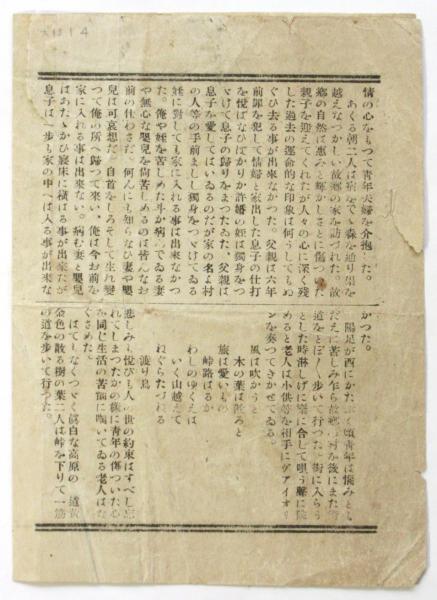 大13 14
情の心をもつて青年夫婦を介抱した。
あくる朝二人は宿を出で森を通り里を
越えなつかしい故郷の家を訪づれた、故
郷の自然は惠みと輝かしさとに傷ついた
親子を迎えてくれたが人々の心に深く殘
した過去の運命的な印象は何うしてもぬ
ぐひ去る事が出來なかつた。父親は六年
前罪を犯して情婦と家出した息子の仕打
を悦ばなひばかりか許婚の姪は獨身をつ
ゞけて息子の歸りをまつたゐた、父親は
息子を愛してはいゐるのだが家の名と村
の人等の手前ましし獨身をつゞけてゐる
姪に對しても家に入れる事は出來なかつ
た。俺や姪を苦しめた斗か病んでゐる妻
や無心な嬰兒を尙苦しめるのは皆んなお
前の仕わざだ。何んにも知らなひ妻や嬰
兒は可哀想だ、自首をしろそして生れ變
つて俺の所へ歸つて來い、俺は今お前を
家に入れる事は出來ない。病む妻と嬰兒
はあたゝかひ寢床に橫はる事が出來たが
息子は一步も家の中へは入る事が出來な
かつた。
陽足が西にかたむく頃靑年は惱みと
だえに苦しみ乍ら故鄕の村を後にまた
道をとぼしく步いて行つた、街に入らう
とした時淋しげに樂に合して唄う聲に
めると老人は小供等を相手にヴアイオリ
ンを奏つてきかせてゐる。
風は吹かうと
木の葉は散ろと
旅は愛いもの
峠路はるか
わしのゆくえは
いく山越えて
ねぐらたづねる
渡り鳥
悲しみも悅びも人の世の約束はすべし忘
れてしまつたかの樣に靑年の傷ついた心
を同じ生活の苦惱に喘いてゐる老人はな
ぐさめた。
はてしなくつゞく眞白な高原の一道黃
金色の散る樹の葉二人は峠を下りて一筋
の道を步いて行つた。